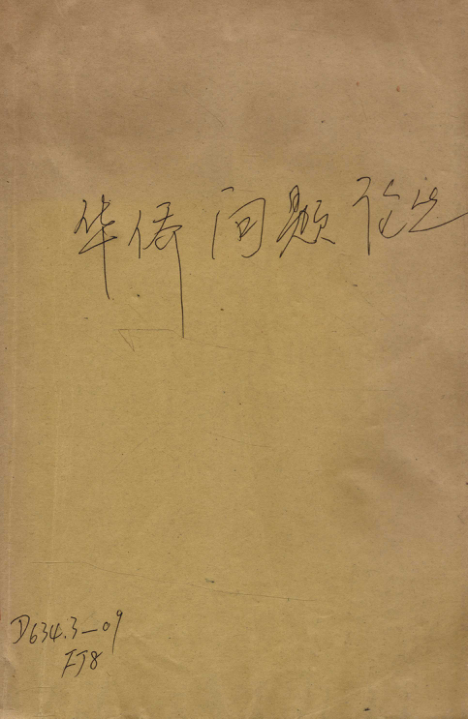 华侨问题论丛
D634.3-09
FJ8